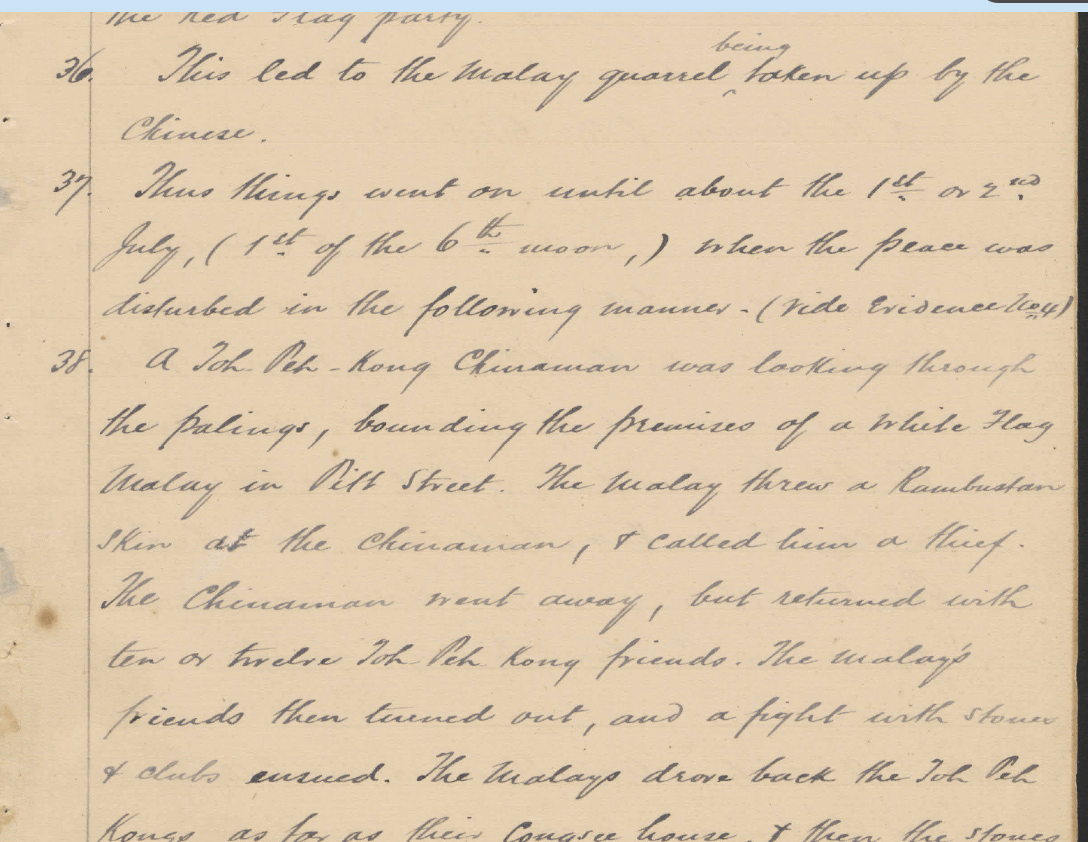 the Red Flag party.
being
36. This led to the Malay quarrel ‸ taken up by the
Chinese.
37. Thus things went on until about the 1st or 2nd
July, (1st of the 6th moon,) when the peace was
disturbed in the following manner - (vide Evidence No 4)
38. A Toh-Peh-Kong Chinaman was looking through
the palings, bounding the premises of a White Flag
Malay in Pitt Street. The Malay threw a Rambustan
skin at the Chinaman, & called him a thief.
The Chinaman went away, but returned with
ten or twelve Toh Peh Kong friends. The Malay's
friends then turned out, and a fight with stones
& clubs ensued. The Malays drove back the Toh Peh
Kongs as far as their Congsee house, & then the stones